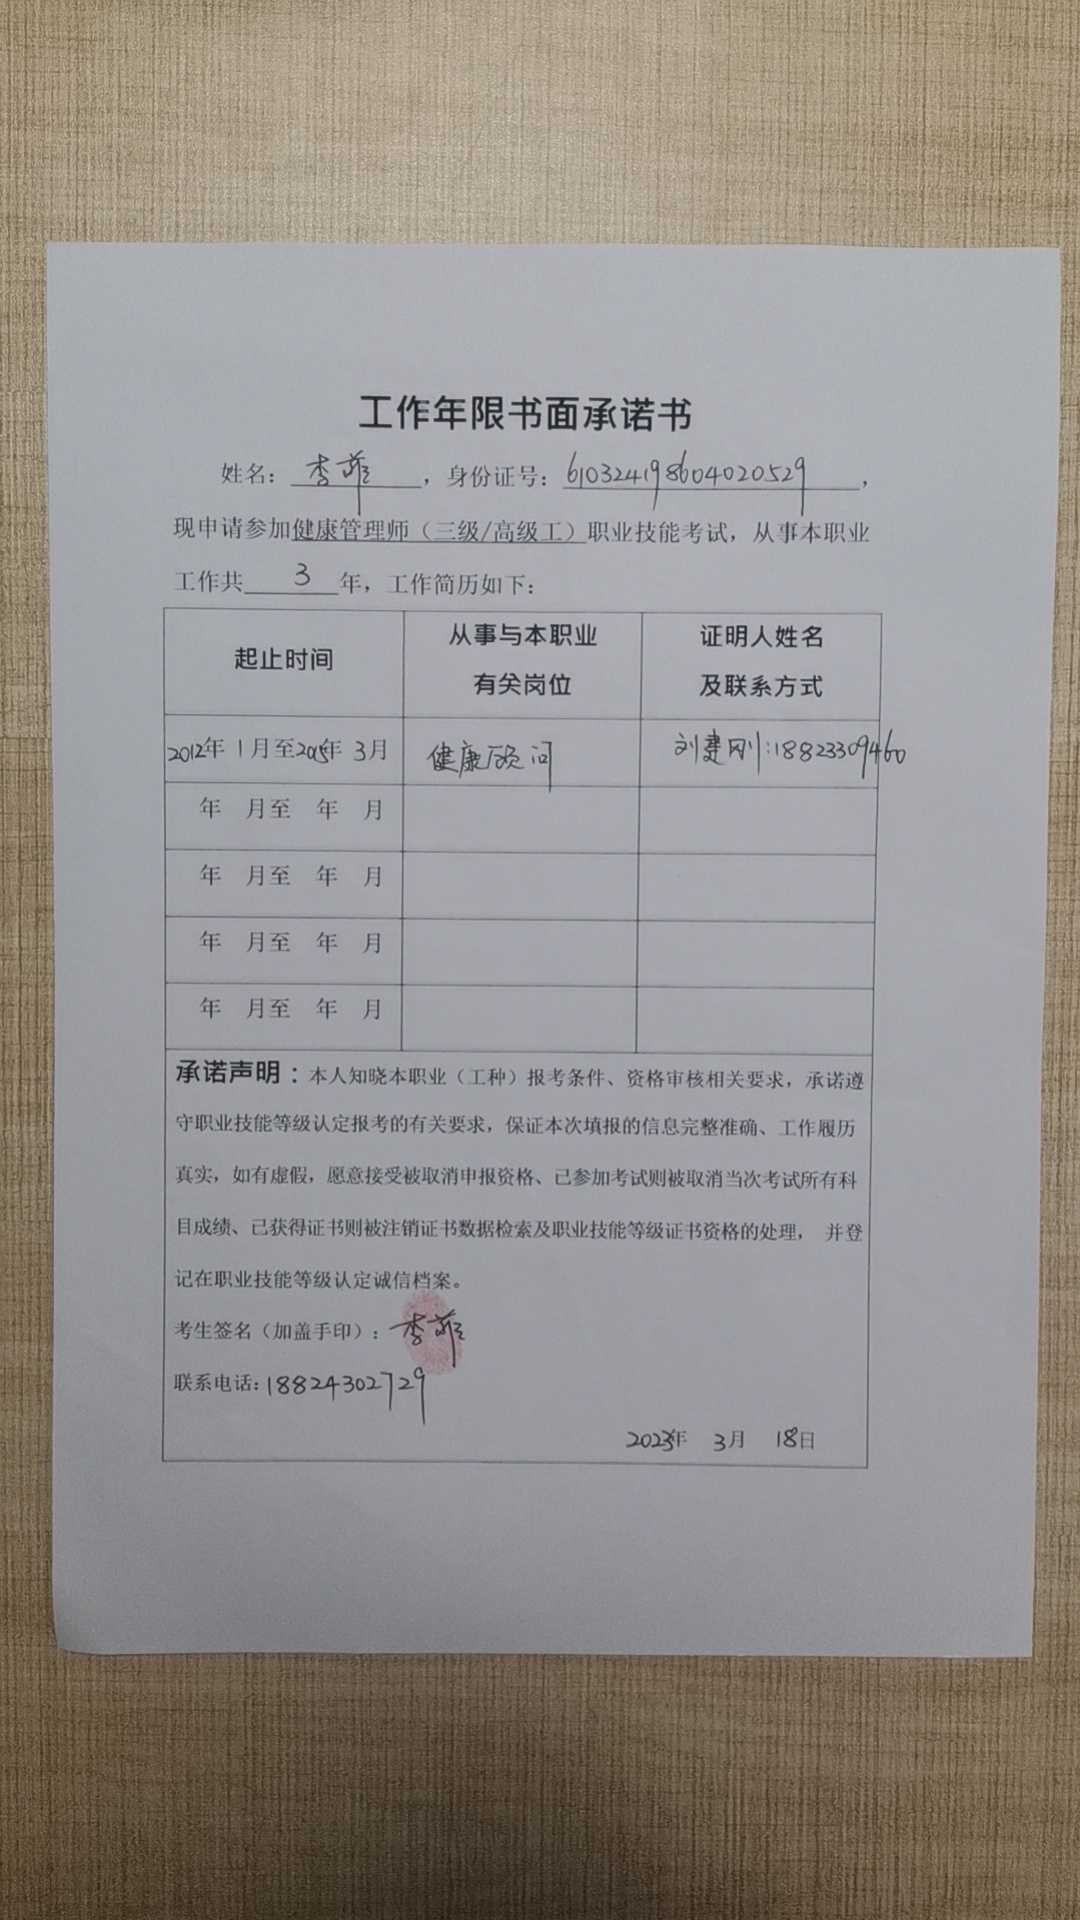 工作年限书面承诺书
姓名：李菲，身份证号：610324198604020529，
现申请参加健康管理师（三级/高级工）职业技能考试，从事本职业
工作共3年，工作简历如下：
起止时间 从事与本职业有关岗位 证明人姓名及联系方式
2012年 1月至2015年 3月 健康顾问 刘建刚：18823309460
年 月至 年 月
年 月至 年 月
年 月至 年 月
年 月至 年 月
承诺声明：本人知晓本职业（工种）报考条件、资格审核相关要求，承诺遵
守职业技能等级认定报考的有关要求，保证本次填报的信息完整准确、工作履历
真实，如有虚假，愿意接受被取消申报资格、已参加考试则被取消当次考试所有科
目成绩、已获得证书则被注销证书数据检索及职业技能等级证书资格的处理， 并登
记在职业技能等级认定诚信档案。
考生签名（加盖手印）：李菲
联系电话：18824302729
2023年 3月 18日